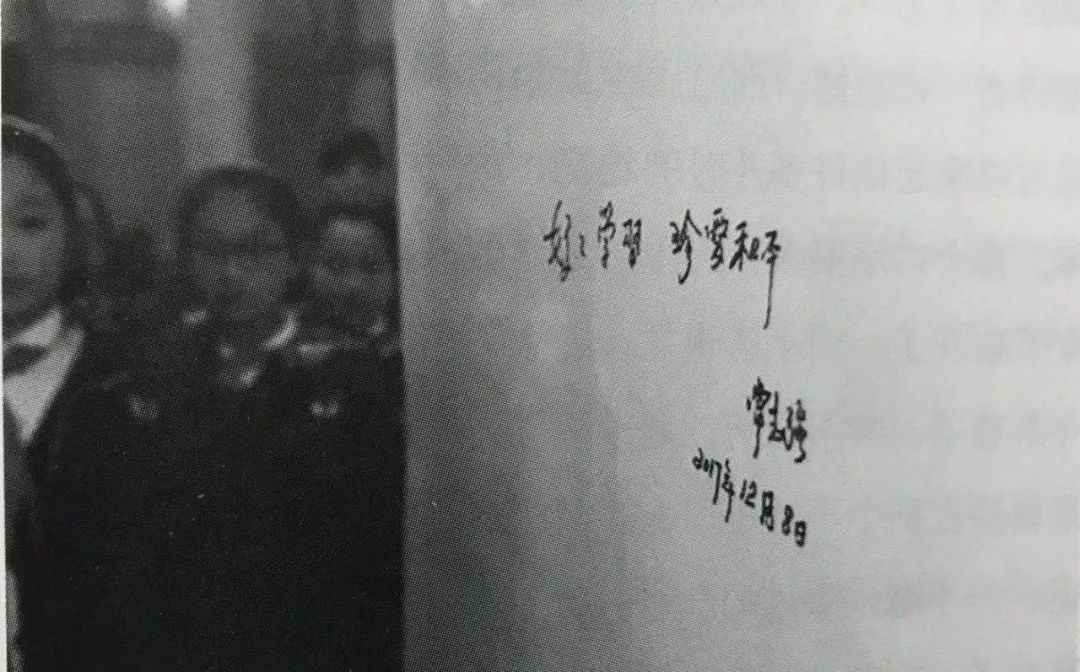 好々学習 珍爱和平
常志强
2017年12月8日